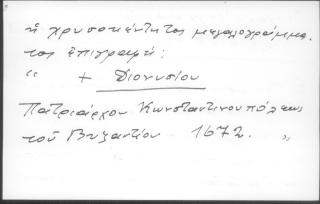 ἡ χρυσοκέντητος μεγαλογράμμα-
τος ἐπιγραφή:
“ + Διονυσίου
Πατριάρχου Κωνσταντινουπόλεως
τοῦ Βυζαντίου 1672. ”